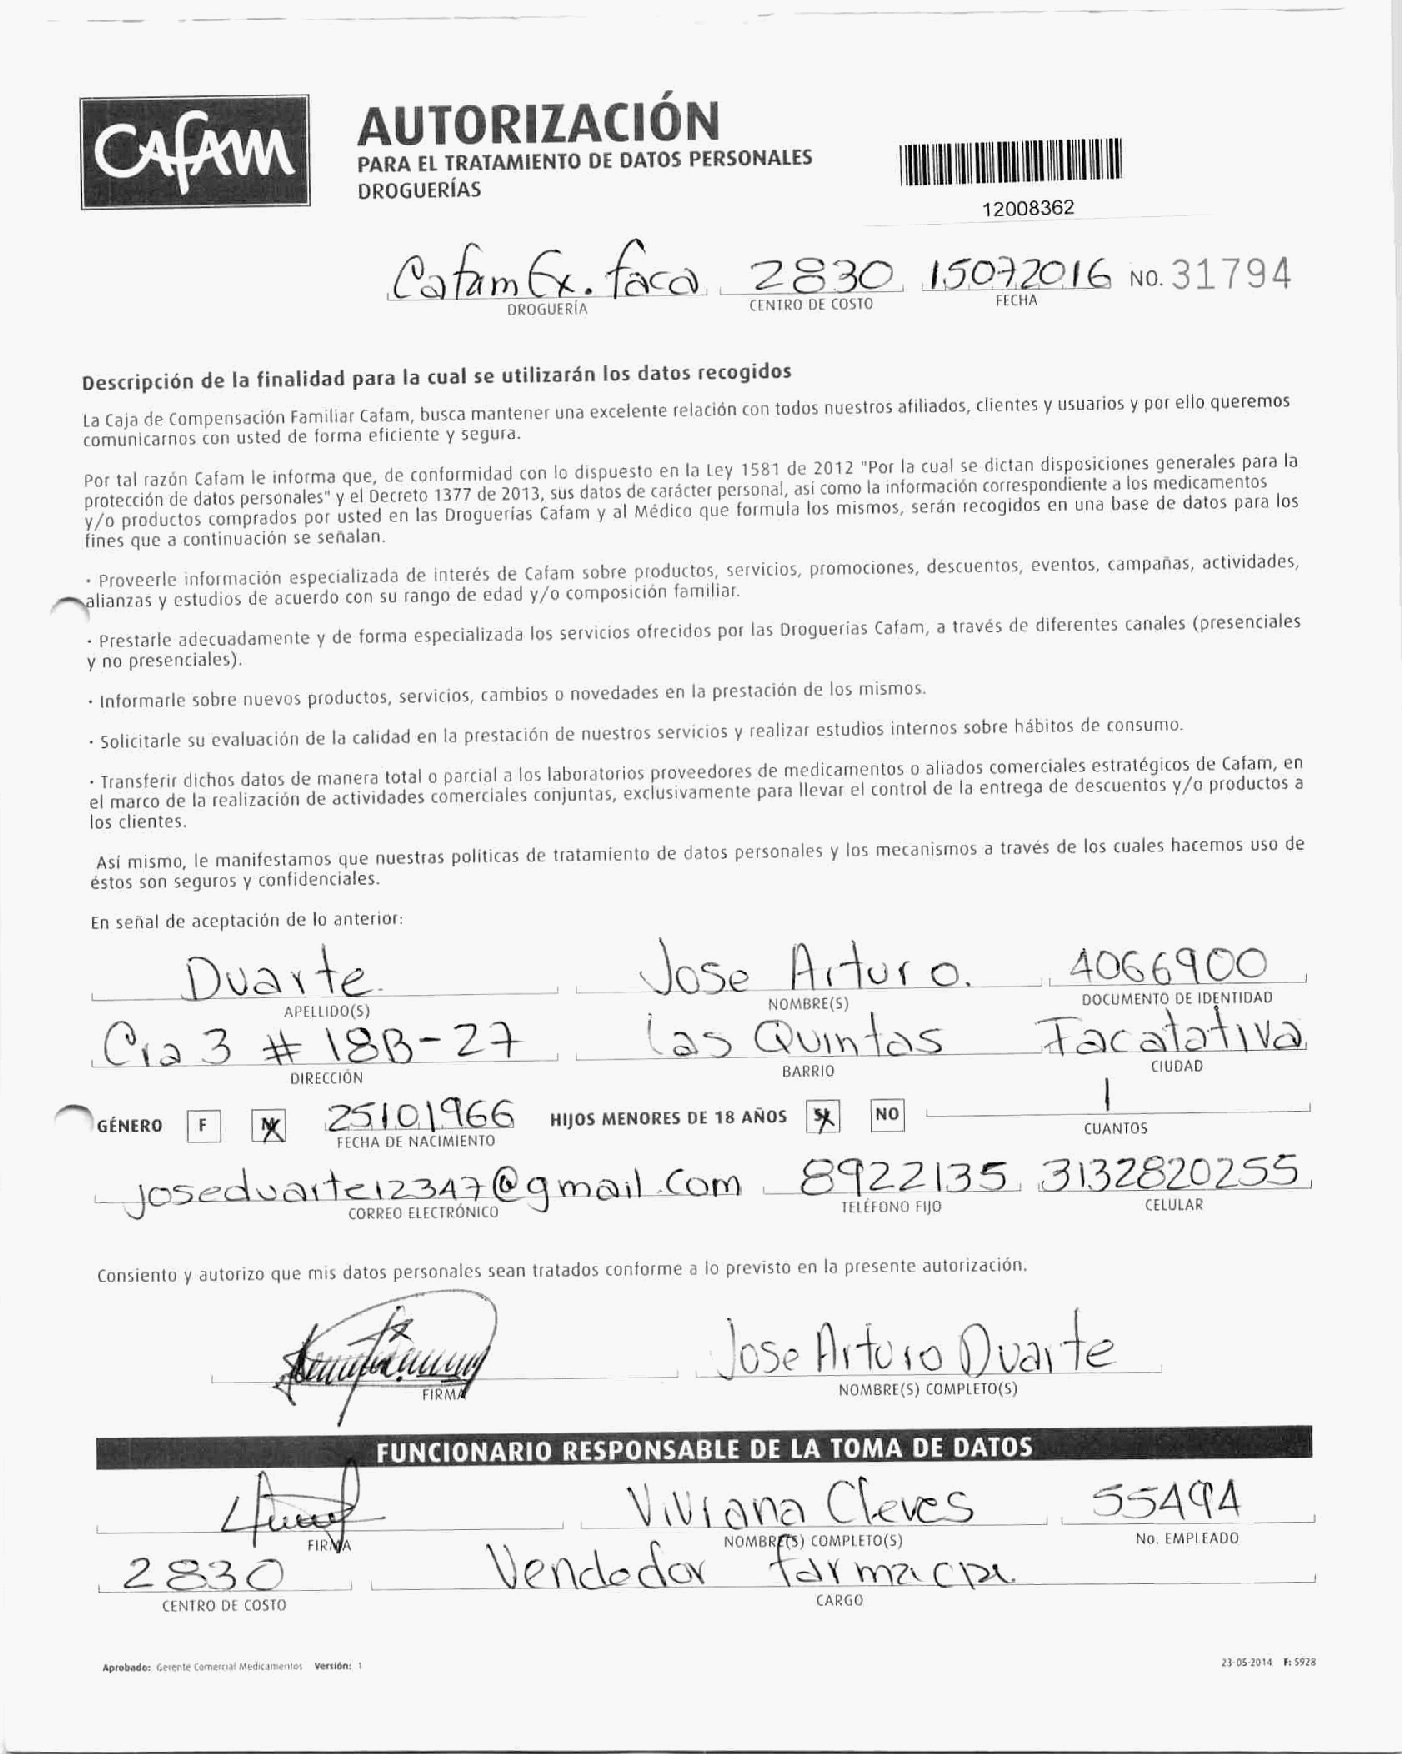 CAFAM
AUTORIZACIÓN
PARA EL TRATAMIENTO DE DATOS PERSONALES
DROGUERÍAS
12008362
Cafam Ex. faca 2830 15072016 NO. 31794
DROGUERÍA CENTRO DE COSTO FECHA
Descripción de la finalidad para la cual se utilizarán los datos recogidos
La Caja de Compensación Familiar Cafam, busca mantener una excelente relación con todos nuestros afiliados, clientes y usuarios y por ello queremos
comunicarnos con usted de forma eficiente y segura.
Por tal razón Cafam le informa que, de conformidad con lo dispuesto en la Ley 1581 de 2012 "Por la cual se dictan disposiciones generales para la
protección de datos personales" y el Decreto 1377 de 2013, sus datos de carácter personal, asi como la información correspondiente a los medicamentos
y/o productos comprados por usted en las Droguerías Cafam y al Médico que formula los mismos, serán recogidos en una base de datos para los
fines que a continuación se señalan.
· Proveerle información especializada de interés de Cafam sobre productos, servicios, promociones, descuentos, eventos, campañas, actividades,
alianzas y estudios de acuerdo con su rango de edad y/o composición familiar.
· Prestarle adecuadamente y de forma especializada los servicios ofrecidos por las Droguerías Cafam, a través de diferentes canales (presenciales
y no presenciales).
· Informarle sobre nuevos productos, servicios, cambios o novedades en la prestación de los mismos.
· Solicitarle su evaluación de la calidad en la prestación de nuestros servicios y realizar estudios internos sobre hábitos de consumo.
· Transferir dichos datos de manera total o parcial a los laboratorios proveedores de medicamentos o aliados comerciales estratégicos de Cafam, en
el marco de la realización de actividades comerciales conjuntas, exclusivamente para llevar el control de la entrega de descuentos y/o productos a
los clientes.
Así mismo, le manifestamos que nuestras políticas de tratamiento de datos personales y los mecanismos a través de los cuales hacemos uso de
éstos son seguros y confidenciales.
En señal de aceptación de lo anterior:
Duarte. Jose Arturo. 4066900
APELLIDO(S) NOMBRE(S) DOCUMENTO DE IDENTIDAD
Cra 3 # 18B-27 las Quintas Facatativa
DIRECCIÓN BARRIO CIUDAD
GÉNERO F M 25101966 HIJOS MENORES DE 18 AÑOS SI NO 1
FECHA DE NACIMIENTO CUANTOS
joseduarte12347@gmail.com 8922135 3132820255
CORREO ELECTRÓNICO TELÉFONO FIJO CELULAR
Consiento y autorizo que mis datos personales sean tratados conforme a lo previsto en la presente autorización.
Jose Arturo Duarte
FIRMA NOMBRE(S) COMPLETO(S)
FUNCIONARIO RESPONSABLE DE LA TOMA DE DATOS
Viviana Cleves 55494
FIRMA NOMBRE(S) COMPLETO(S) No. EMPLEADO
2830 Vendedor farmacia.
CENTRO DE COSTO CARGO
Aprobado: Gerente Comercial Medicamentos Versión: 1 23-05-2014 F: 5928